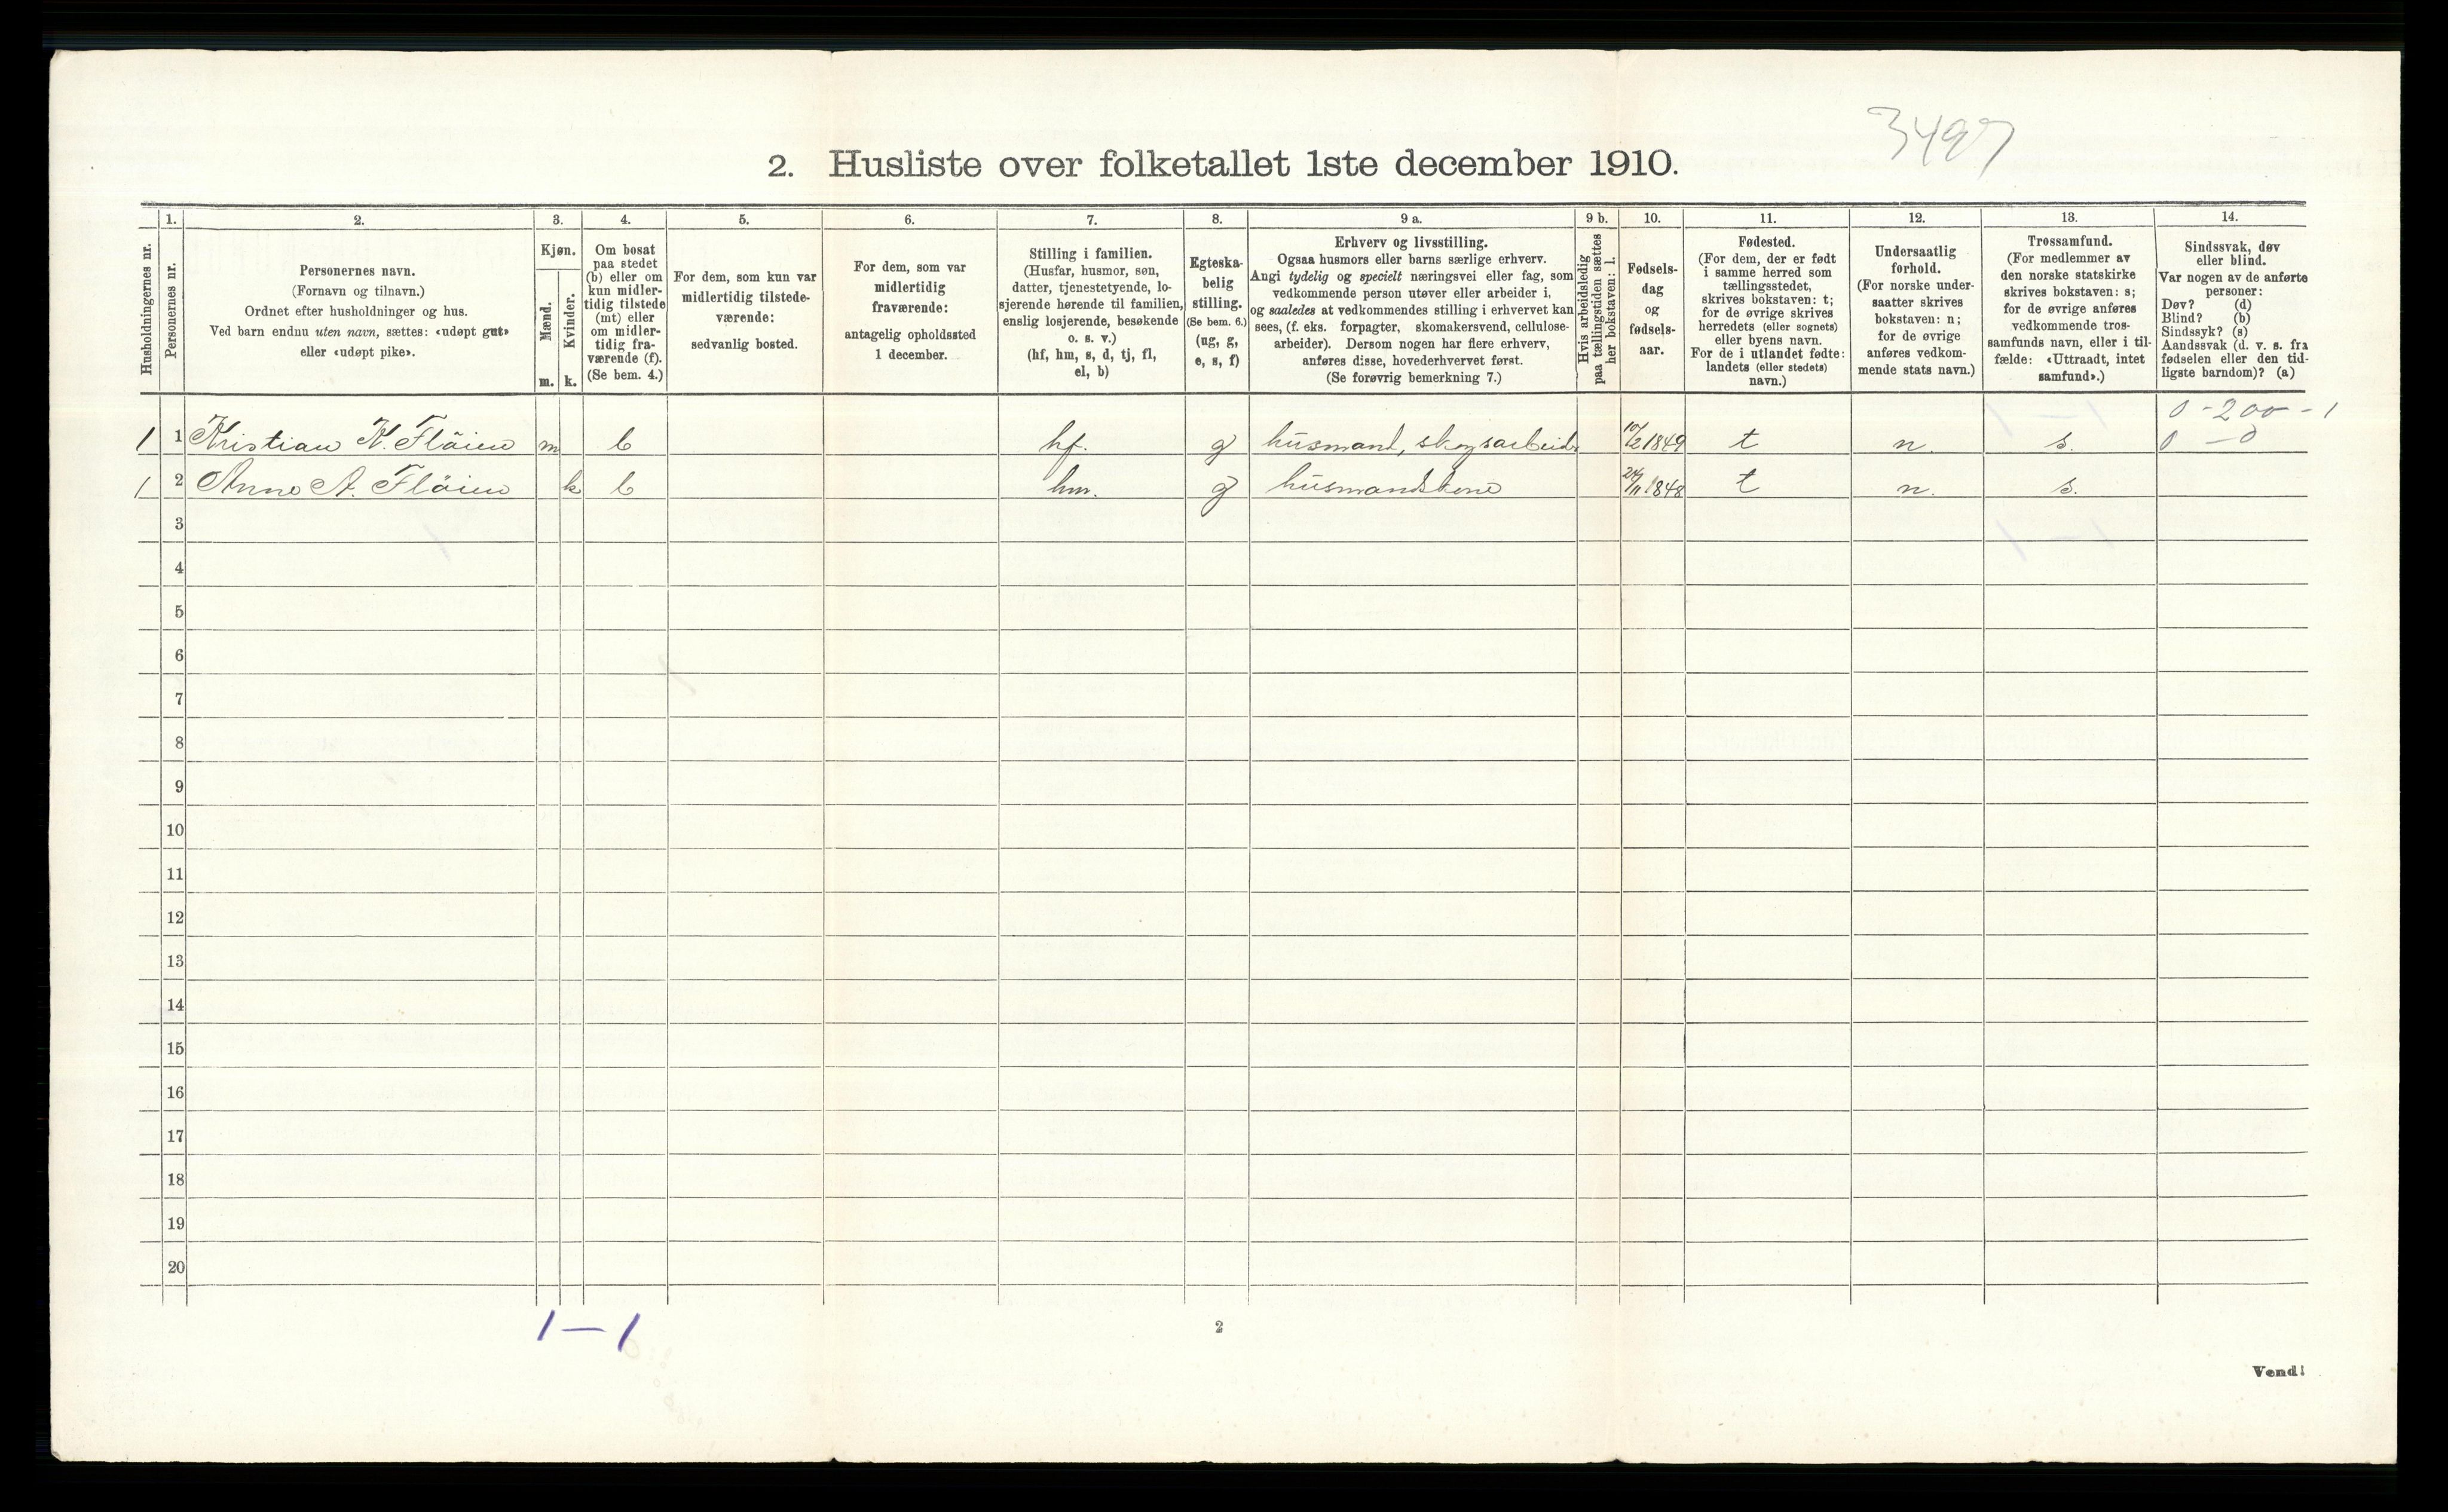 3497
2. Husliste over folketallet 1ste december 1910.
Husholdningernes nr.
1.
Personernes nr.
2.
Personernes navn.
(Fornavn og tilnavn.)
Ordnet efter husholdninger og hus.
Ved barn endnu uten navn, sættes: «udøpt gut»
eller «udøpt pike».
3.
Kjøn.
Mænd.
m.
Kvinder.
k.
4.
Om bosat
paa stedet
(b) eller om
kun midler-
tidig tilstede
(mt) eller
om midler-
tidig fra-
værende (f).
(Se bem. 4.)
5.
For dem, som kun var
midlertidig tilstede-
værende:
sedvanlig bosted.
6.
For dem, som var
midlertidig
fraværende:
antagelig opholdssted
1 december.
7.
Stilling i familien.
(Husfar, husmor, søn,
datter, tjenestetyende, lo-
sjerende hørende til familien,
enslig losjerende, besøkende
o. s. v.)
(hf, hm, s, d, tj, fl,
el, b)
8.
Egteska-
belig
stilling.
(Se bem. 6.)
(ug, g,
e, s, f)
9 a.
Erhverv og livsstilling.
Ogsaa husmors eller barns særlige erhverv.
Angi tydelig og specielt næringsvei eller fag, som
vedkommende person utøver eller arbeider i,
og saaledes at vedkommendes stilling i erhvervet kan
sees, (f. eks. forpagter, skomakersvend, cellulose-
arbeider). Dersom nogen har flere erhverv,
anføres disse, hovederhvervet først.
(Se forøvrig bemerkning 7.)
9 b.
Hvis arbeidsledig
paa tællingstiden sættes
her bokstaven: l.
10.
Fødsels-
dag
og
fødsels-
aar.
11.
Fødested.
(For dem, der er født
i samme herred som
tællingsstedet,
skrives bokstaven: t;
for de øvrige skrives
herredets (eller sognets)
eller byens navn.
For de i utlandet fødte:
landets (eller stedets)
navn.)
12.
Undersaatlig
forhold.
(For norske under-
saatter skrives
bokstaven: n;
for de øvrige
anføres vedkom-
mende stats navn.)
13.
Trossamfund.
(For medlemmer av
den norske statskirke
skrives bokstaven: s;
for de øvrige anføres
vedkommende tros-
samfunds navn, eller i til-
fælde: «Uttraadt, intet
samfund».)
14.
Sindssvak, døv
eller blind.
Var nogen av de anførte
personer:
Døv? (d)
Blind? (b)
Sindssyk? (s)
Aandssvak (d. v. s. fra
fødselen eller den tid-
ligste barndom)? (a)
0 - 200 - 1
1 1 Kristian K. Fläien m b hf. g husmand, skogsarbeid. 10/2 1849 t n. s. 0 - 0
1 2 Anne A. Fläien k b hm. g husmandskone 24/11 1848 t n. s.
3
4
5
6
7
8
9
10
11
12
13
14
15
16
17
18
19
20
1 - 1
2
Vend!